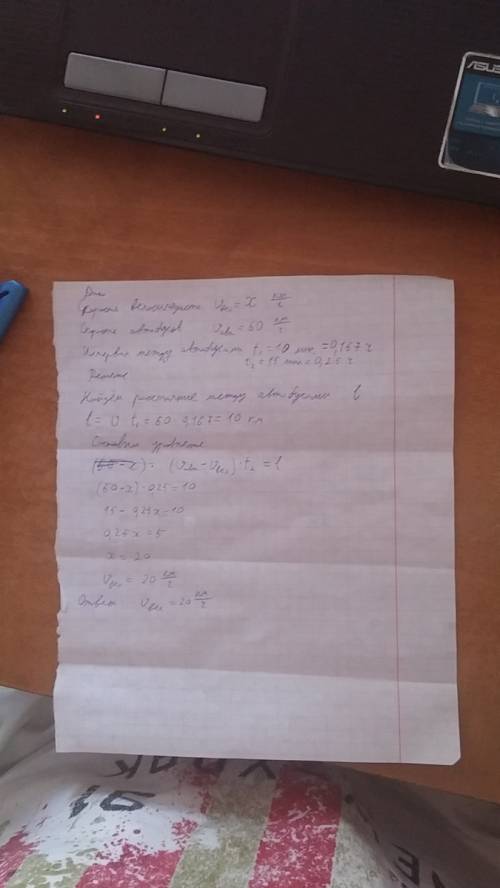 ASUS
Дано
Скорость велосипедиста Vвел = x км/ч
Скорость автобусов Vавт = 60 км/ч
Интервал между автобусами t₁ = 10 мин. = 0,167 ч
t₂ = 15 мин = 0,25 ч
Решение
Найдём расстояние между автобусами l
l = V t₁ = 60 · 0,167 = 10 км
Составим уравнение
(Vавт - Vвел) · t₂ = l
(60 - x) · 0,25 = 10
15 - 0,25x = 10
0,25x = 5
x = 20
Vвел = 20 км/ч
Ответ Vвел = 20 км/ч